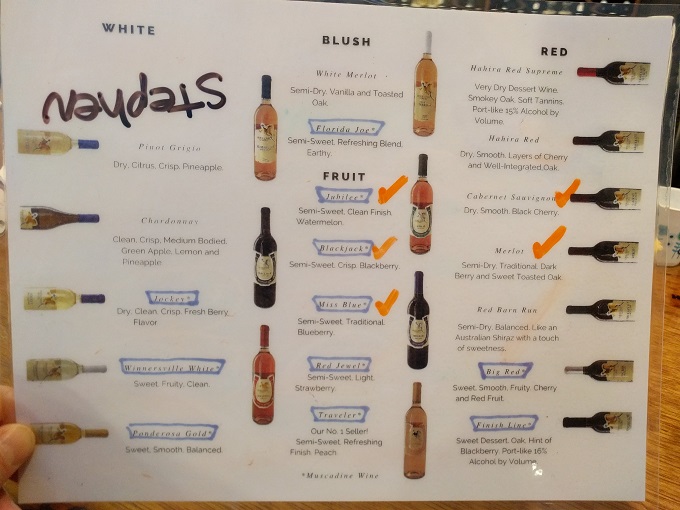 WHITE
Stephen
Pinot Grigio
Dry, Citrus, Crisp, Pineapple.
Chardonnay
Clean, Crisp, Medium Bodied,
Green Apple, Lemon and
Pineapple.
Jockey*
Dry, Clean, Crisp, Fresh Berry
Flavor
Winnersville White*
Sweet, Fruity, Clean.
Ponderosa Gold*
Sweet, Smooth, Balanced.
BLUSH
White Merlot
Semi-Dry, Vanilla and Toasted
Oak.
Florida Joe*
Semi-Sweet, Refreshing Blend,
Earthy.
FRUIT
Jubilee*
Semi-Sweet, Clean Finish,
Watermelon.
Blackjack*
Semi-Sweet, Crisp, Blackberry.
Miss Blue*
Semi-Sweet, Traditional,
Blueberry.
Red Jewel*
Semi-Sweet, Light,
Strawberry.
Traveler*
Our No. 1 Seller!
Semi-Sweet, Refreshing
Finish, Peach.
*Muscadine Wine
RED
Hahira Red Supreme
Very Dry Dessert Wine,
Smokey Oak, Soft Tannins,
Port-like 15% Alcohol by
Volume.
Hahira Red
Dry, Smooth, Layers of Cherry
and Well-Integrated Oak.
Cabernet Sauvignon
Dry, Smooth, Black Cherry.
Merlot
Semi-Dry, Traditional, Dark
Berry and Sweet Toasted Oak.
Red Barn Run
Semi-Dry, Balanced, Like an
Australian Shiraz with a touch
of sweetness.
Big Red*
Sweet, Smooth, Fruity, Cherry
and Red Fruit.
Finish Line*
Sweet Dessert, Oak, Hint of
Blackberry, Port-like 16%
Alcohol by Volume.